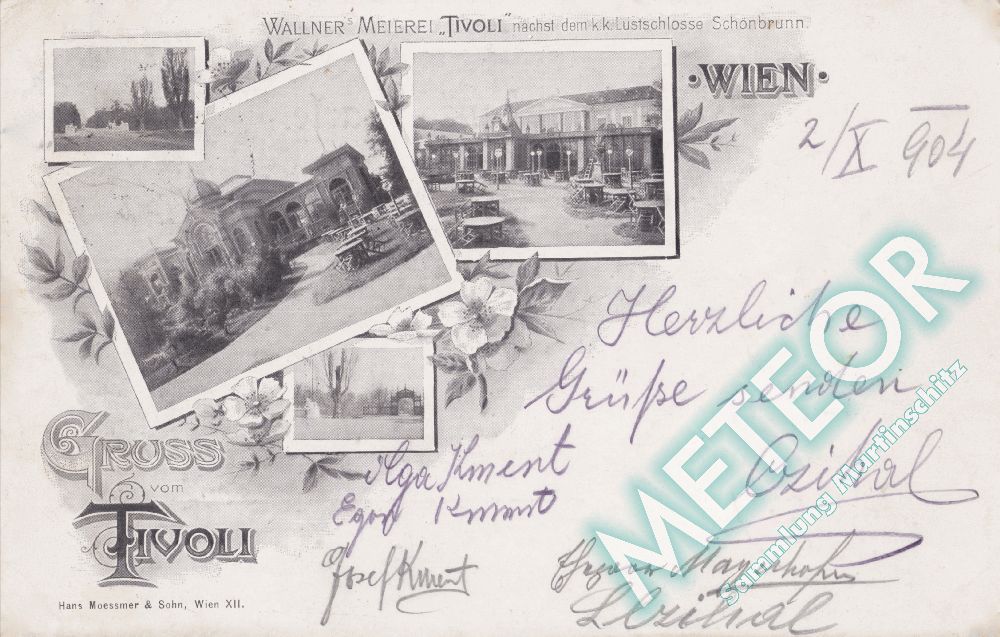 WALLNER'S MEIEREI „TIVOLI" nächst dem k.k. Lustschlosse Schönbrunn.
· WIEN ·
2/X 904
Herzliche
Grüße senden
Czihal
GRUSS
vom
TIVOLI
Olga Kment
Egon Kment
Josef Kment
Mayerhofer
Czihal
Hans Moessmer & Sohn, Wien XII.
METEOR
Sammlung Martinschitz